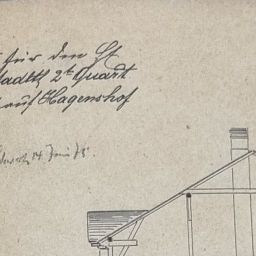 für den H
Stadth, 2t Quart
auf Hagenshof
14. Juni 78.